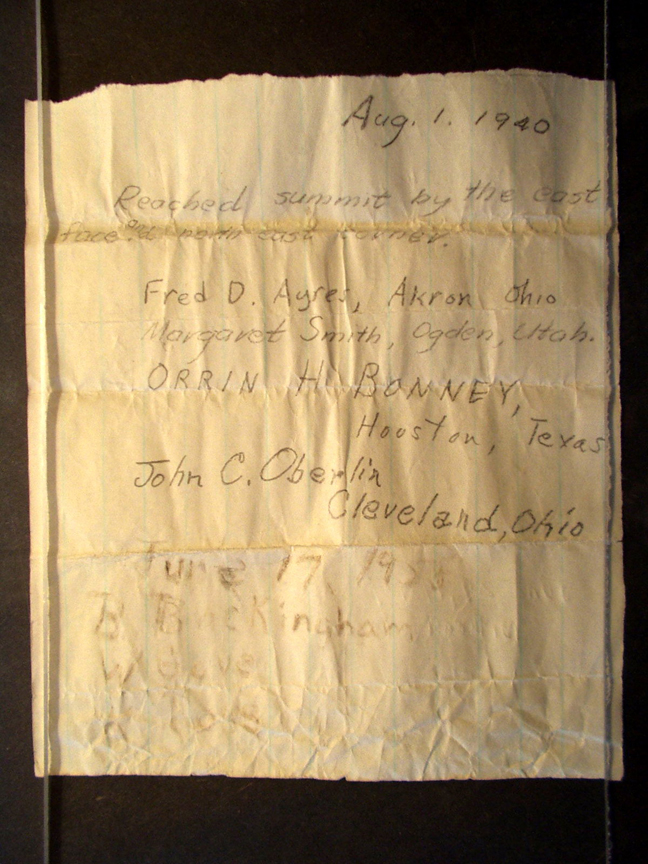 Aug. 1. 1940
Reached summit by the east
face and north east corner.
Fred D. Ayres, Akron Ohio
Margaret Smith, Ogden, Utah.
ORRIN H. BONNEY,
Houston, Texas
John C. Oberlin
Cleveland, Ohio
June 17
B Buckingham